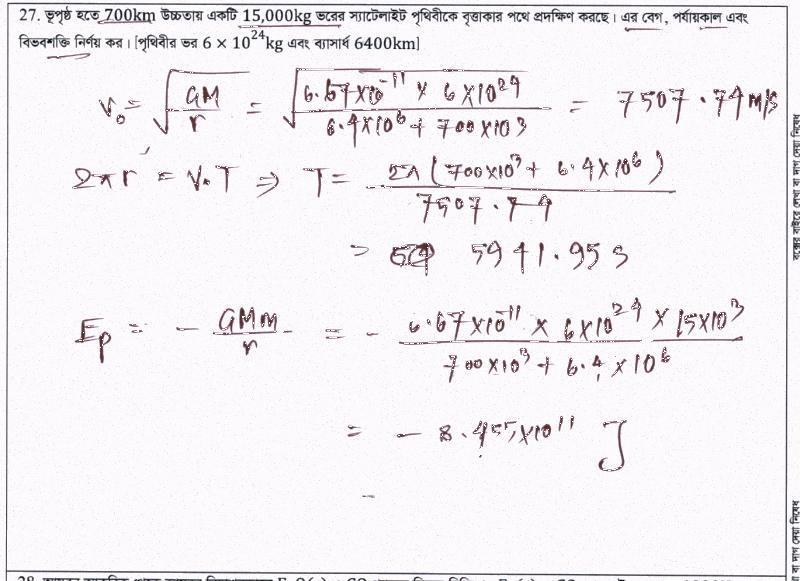 27. ভূপৃষ্ঠ হতে 700km উচ্চতায় একটি 15,000kg ভরের স্যাটেলাইট পৃথিবীকে বৃত্তাকার পথে প্রদক্ষিণ করছে। এর বেগ, পর্যায়কাল এবং
বিভবশক্তি নির্ণয় কর। [পৃথিবীর ভর 6 × 10^24 kg এবং ব্যাসার্ধ 6400km]
v₀ = √(GM/r) = √((6.67×10^-11 × 6×10^24)/(6.4×10^6 + 700×10^3)) = 7507.74 m/s
2πr = v₀T ⇒ T = 2π(700×10^3 + 6.4×10^6)/7507.74
= 5941.95 s
E_p = -GMm/r = -(6.67×10^-11 × 6×10^24 × 15×10^3)/(700×10^3 + 6.4×10^6)
= -8.455×10^11 J